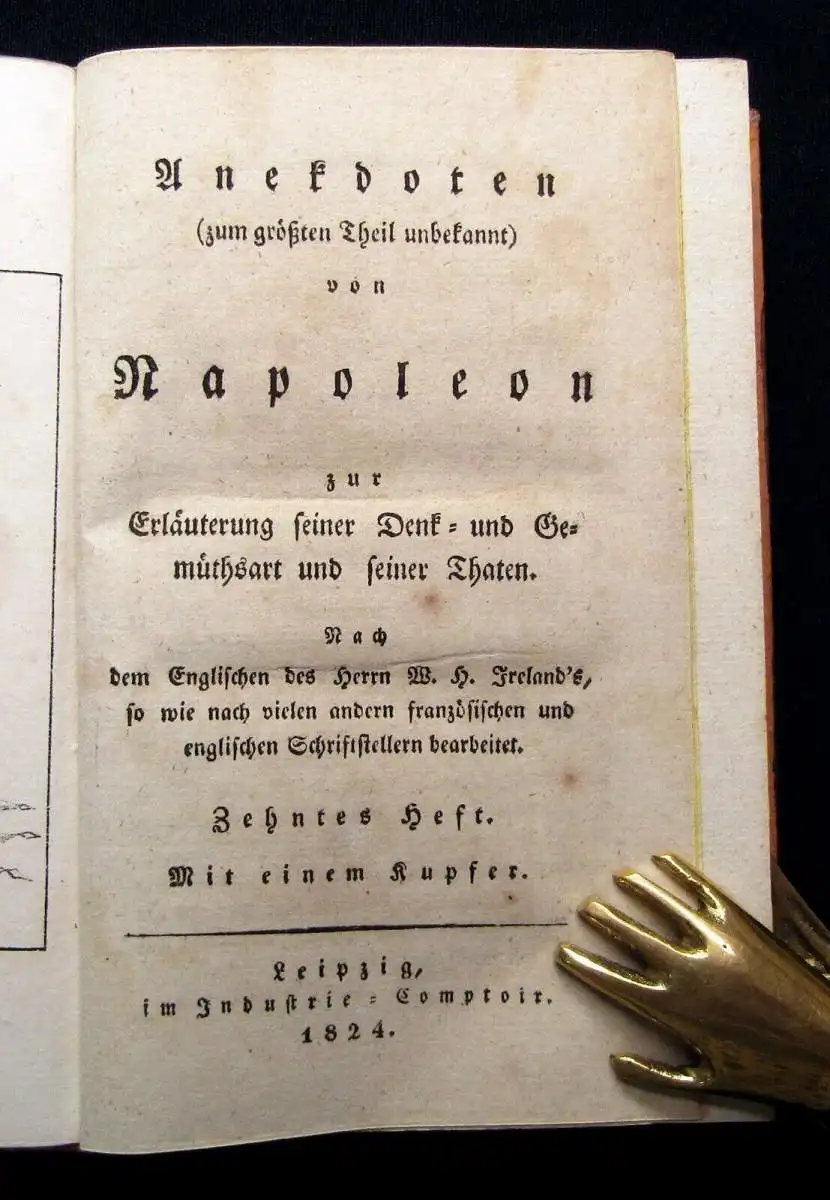 Anekdoten
(zum größten Theil unbekannt)
von
Napoleon
zur
Erläuterung seiner Denk- und Ge-
müthsart und seiner Thaten.
Nach
dem Englischen des Herrn W. H. Ireland's,
so wie nach vielen andern französischen und
englischen Schriftstellern bearbeitet.
Zehntes Heft.
Mit einem Kupfer.
Leipzig,
im Industrie-Comptoir.
1824.